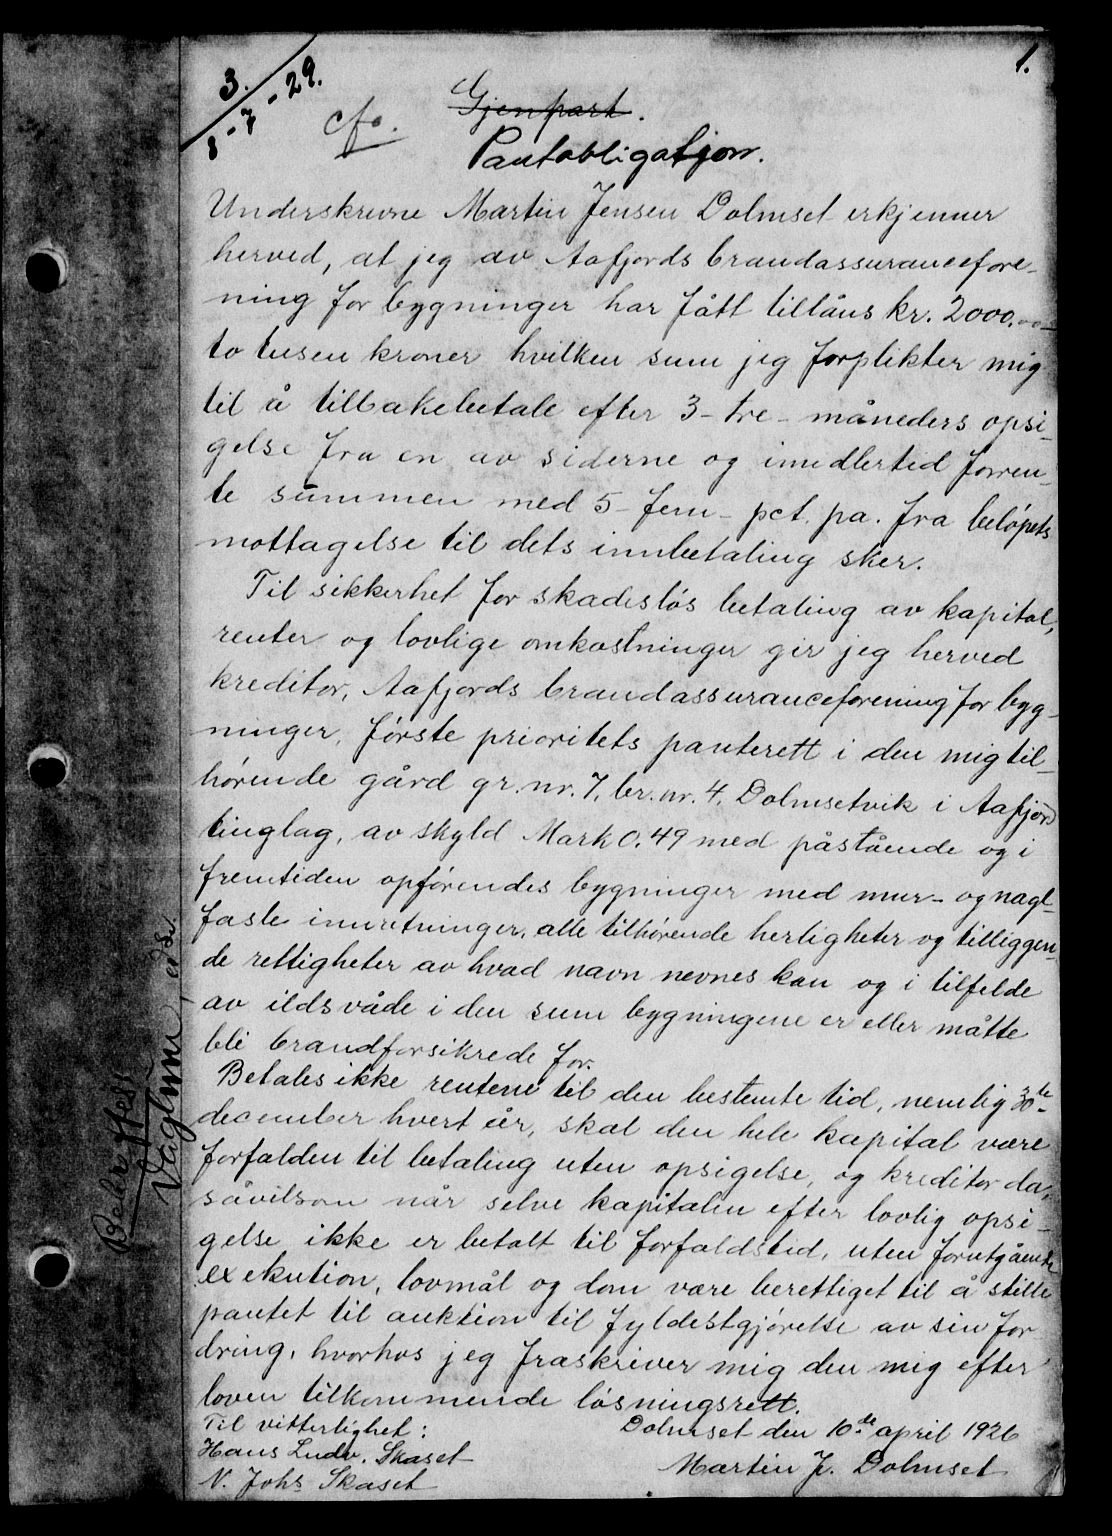 1.
3.
8-7-29.
cfr.
Gjenpart.
Pantobligasjon.
Underskrevne Martin Jensen Dolmset erkjenner
herved, at jeg av Aafjords brandassurancefore-
ning for bygninger har fått tillåns kr. 2000.00
to tusen kroner hvilken sum jeg forplikter mig
til å tilbakebetale efter 3- tre- måneders opsi-
gelse fra en av siderne og imidlertid forren-
te summen med 5- fem- pct. pa. fra beløpets
mottagelse til dets innbetaling sker.
Til sikkerhet for skadesløs betaling av kapital,
renter og lovlige omkostninger gir jeg herved
kreditor, Aafjords brandassuranceforening for byg-
ninger, første prioritets panterett i den mig til-
hørende gård gr. nr. 7, br. nr. 4, Dolmsetvik i Aafjord
tinglag, av skyld Mark 0.49 med påstående og i
fremtiden opførendes bygninger med mur- og nagl-
faste innretninger, alle tilhørende herligheter og tilliggen-
de rettigheter av hvad navn nevnes kan og i tilfelde
av ildsvåde i den sum bygningene er eller måtte
bli brandforsikrede for.
Betales ikke rentene til den bestemte tid, nemlig 30te
december hvert år, skal den hele kapital være
forfalden til betaling uten opsigelse, og kreditor da,
såvelsom når selve kapitalen efter lovlig opsi-
gelse ikke er betalt til forfaldstid, uten forutgående
exekution, lovmål og dom være berettiget til å stille
pantet til auktion til fyldestgjørelse av sin for
dring, hvorhos jeg fraskriver mig den mig efter
loven tilkommende løsningsrett.
Dolmset den 10de april 1926
Til vitterlighet:
Hans Ludv. Skaset
Martin J. Dolmset
N. Johs Skaset